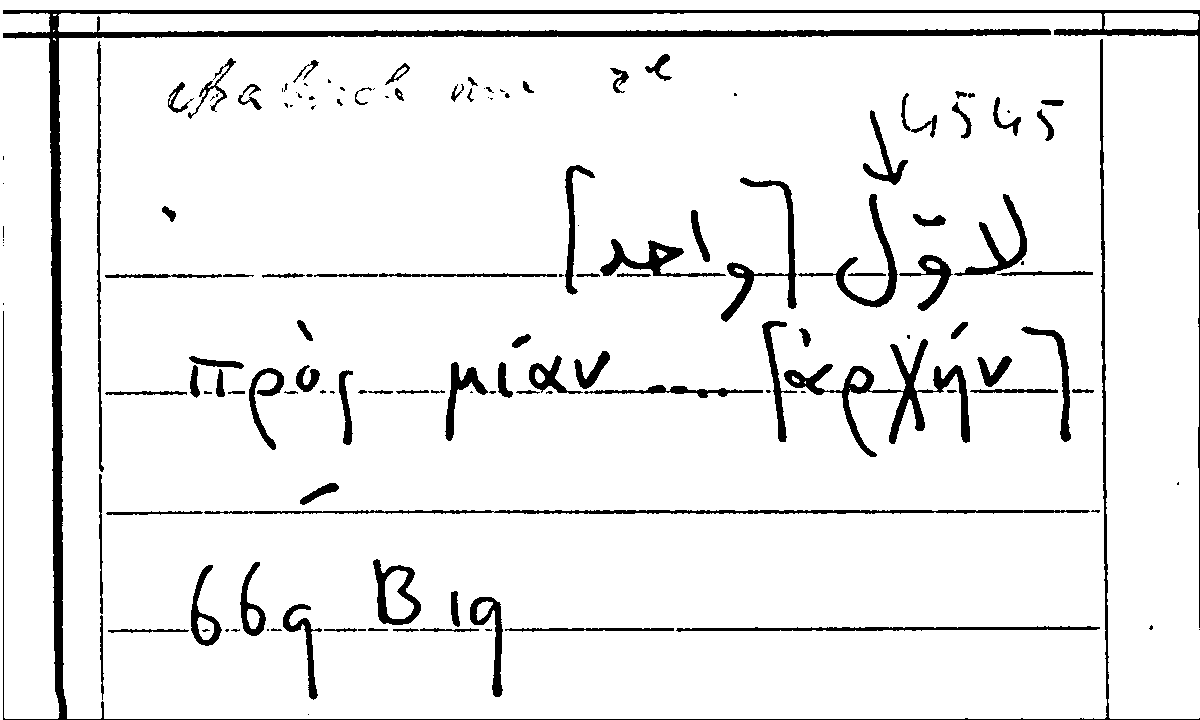 4545
لاوّل [واحد]
πρὸς μίαν .... [ἀρχήν]
669 B 19